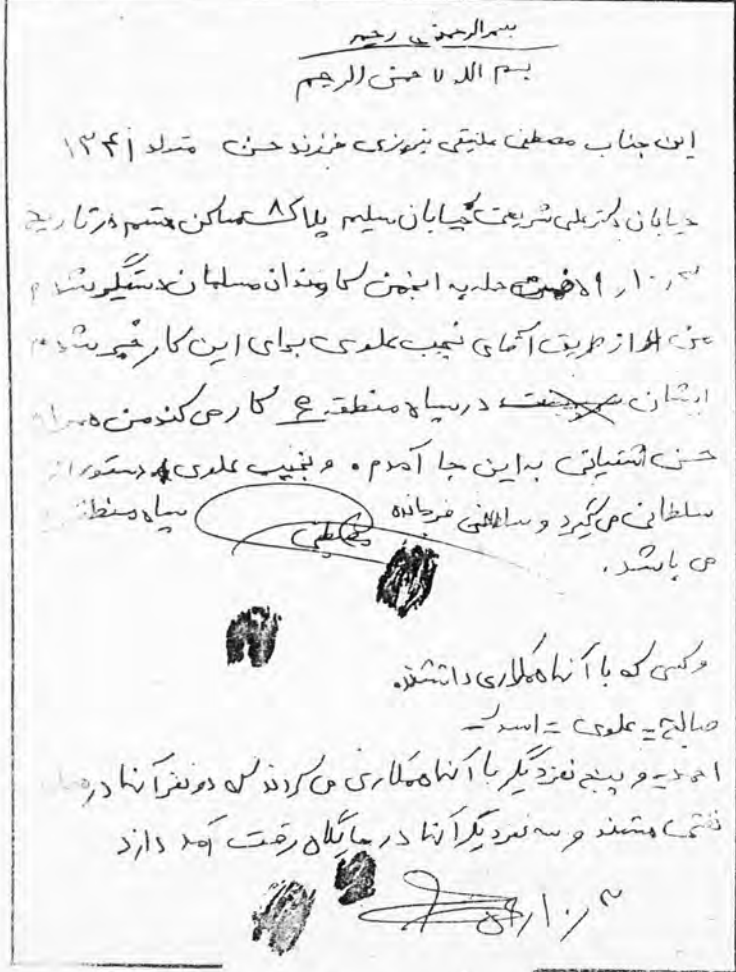 بسم الرحمن رحیم
بسم الله الرحمن الرحیم
این جناب مصطفی علینقی نیروزی فرزند حسن متولد ۱۳۴۱
خیابان دکتر علی شریعتی خیابان سلیم پلاک ۸ ساکن هستم در تاریخ
حمله به انجمن مسلمان دستگیر شدم
من از طریق آقای نجیب علوی برای این کار شدم
ایشان در سپاه منطقه کار می کند من همراه
حسن آشتیانی به این جا آمدم. و نجیب علوی دستور از
سلطانی می گیرد و سلطانی فرمانده سپاه منطقه
مصطفی
می باشد.
و کسی که با آنها همکاری داشتند.
صالح = علوی = اسد
احمد و پنج نفر دیگر با آنها همکاری می کردند که دو نفر آنها در
هستند و سه نفر دیگر آنها در جایگاه رفت آمد دارد